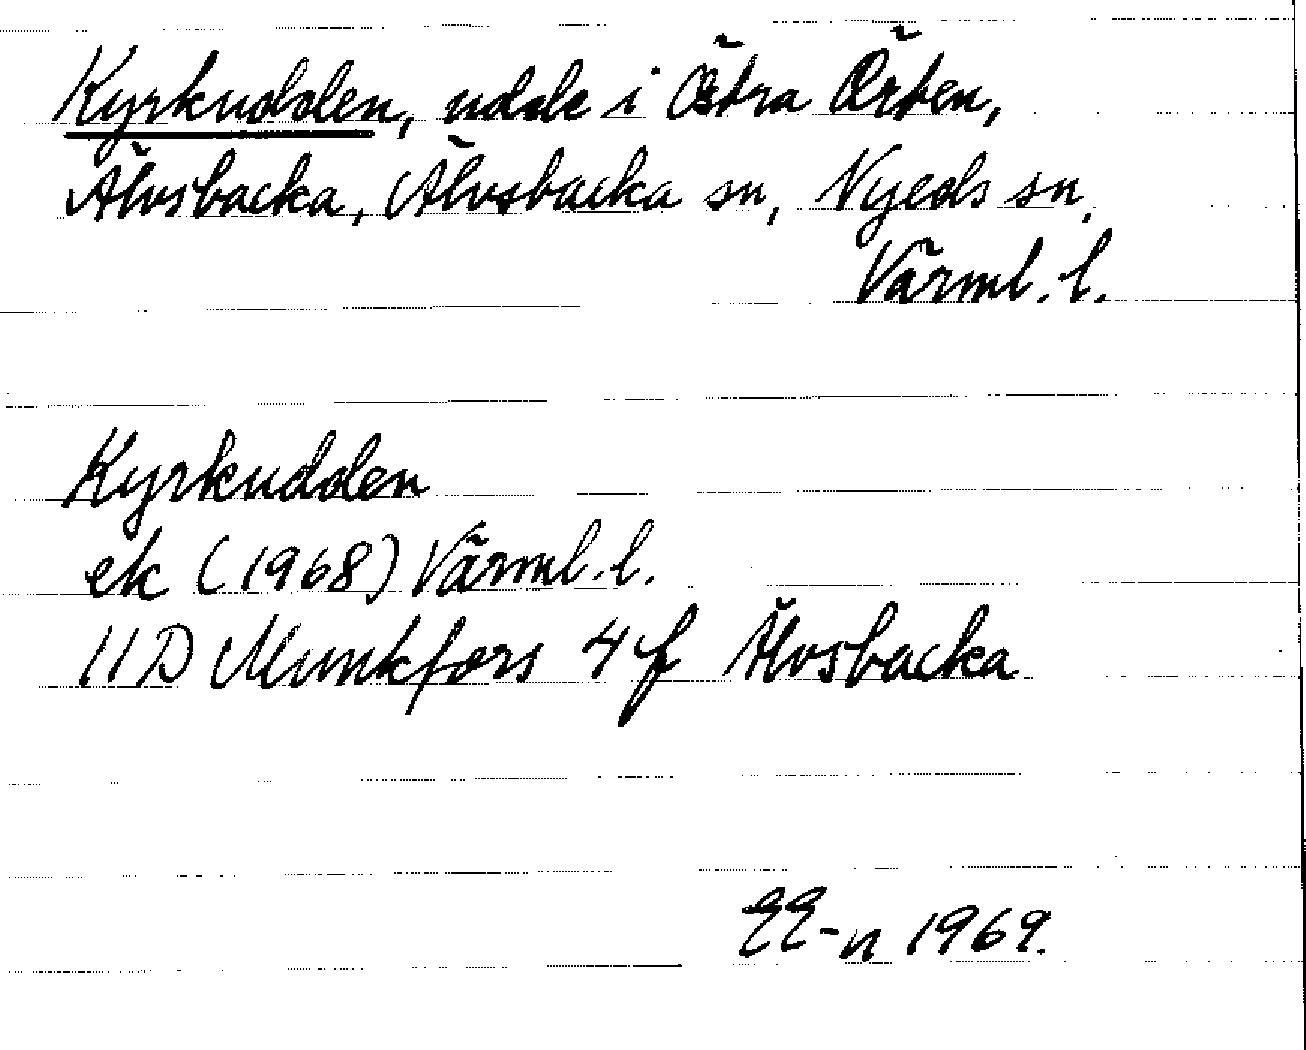 Kyrkudden, udde i Östra Örten,
Älvsbacka, Älvsbacka sn, Nyeds sn,
Värml. l.
Kyrkudden
ek (1968) Värml. l.
11D Munkfors 4f Älvsbacka
EE-n 1969.